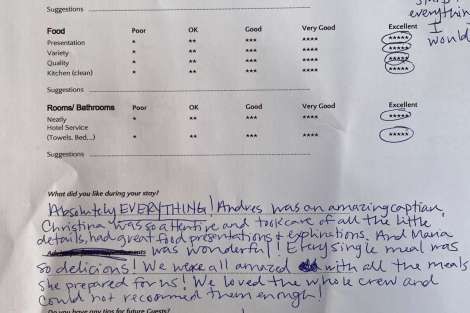 Suggestions
everything
I
would
Food Poor OK Good Very Good Excellent
Presentation * ** *** **** *****
Variety * ** *** **** *****
Quality * ** *** **** *****
Kitchen (clean) * ** *** **** *****
Suggestions
Rooms/ Bathrooms Poor OK Good Very Good Excellent
Neatly * ** *** **** *****
Hotel Service
(Towels, Bed...) * ** *** **** *****
Suggestions
What did you like during your stay?
Absolutely EVERYTHING! Andres was an amazing captian,
Christina was so attentive and took care of all the little
details, had great food presentations & explinations. And Maria
was wonderful! Every single meal was
so delicious! We were all amazed with all the meals
she prepared for us! We loved the whole crew and
could not recommend them enough!
Do you have any tips for future Guests?